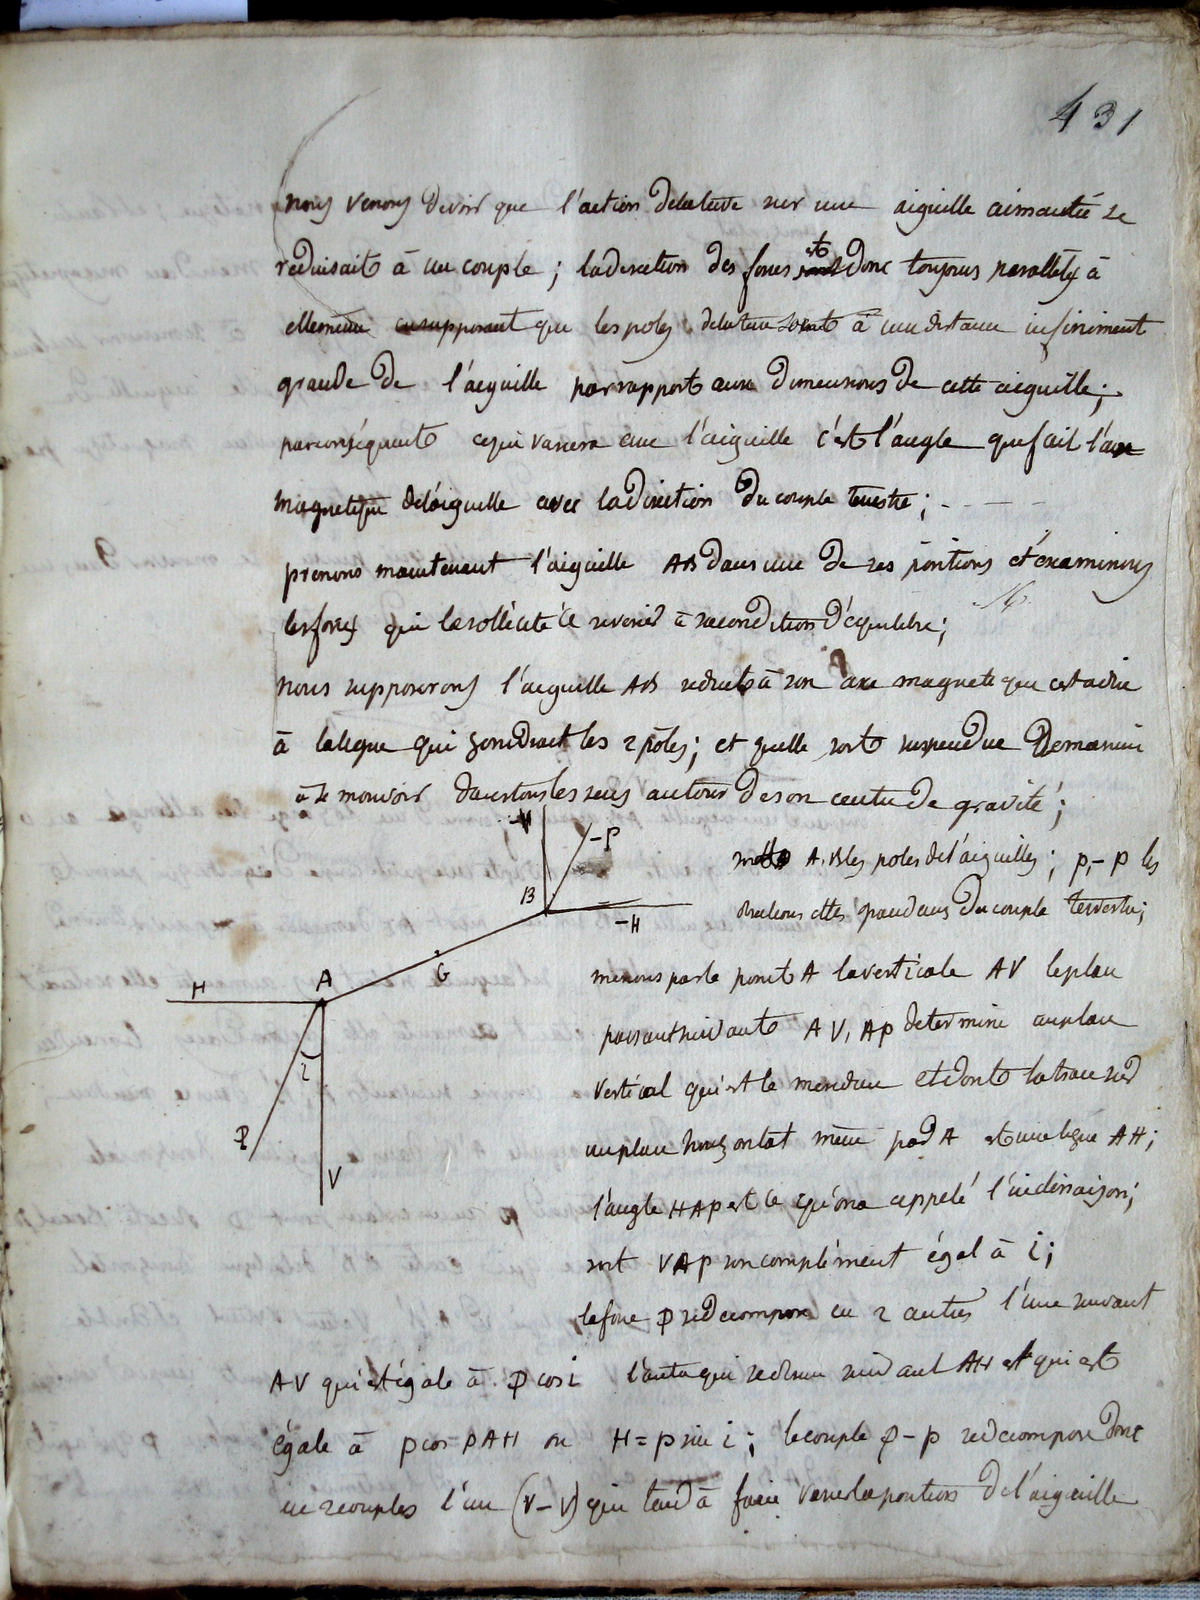 431
nous venons devoir que l'action delaterre sur une aiguille aimantée se
réduisait à un couple ; ladirection des forces est donc toujours parallèle à
ellemême ensupposant que lespoles delaterre soient à une distance infiniment
grande de l'aiguille parrapport aux dimensions de cette aiguille ;
parconséquent cequi variera avec l'aiguille c'est l'angle quefait l'axe
magnetique del'aiguille avec ladirection du couple terrestre ; - - -
prenons maintenant l'aiguille AB dans une de ses positions et examinons
lesforces qui lasollicite à revenir à sacondition d'équilibre ;
nous supposerons l'aiguille AB réduite à son axe magnetique cestadire
à laligne qui joindrait les 2 pôles ; et quelle soit suspendue demanière
à se mouvoir danstouslessens autour deson centre de gravité ;
-V
-P
B
-H
G
A
H
i
P
V
A, B les poles del'aiguille ; p, -p les
directions et les grandeurs ducouple terrestre ;
menons parle point A laverticale AV leplan
passant suivant AV, AP determine unplan
vertical qui est le meridien et dont latrace sur
unplan horizontal mené par A est uneligne AH ;
l'angle HAP est ce qu'on a appelé l'inclinaison ;
soit VAP soncomplément égal à i ;
laforce P sedecompose en 2 autres l'une suivant
AV qui est égale à P cos i l'autre qui se dirige suivant AH et qui est
égale à p cos PAH ou H = p sin i ; lecouple P - p sedecompose donc
en 2 couples l'un (V - V) qui tend à faire varier la position de l'aiguille